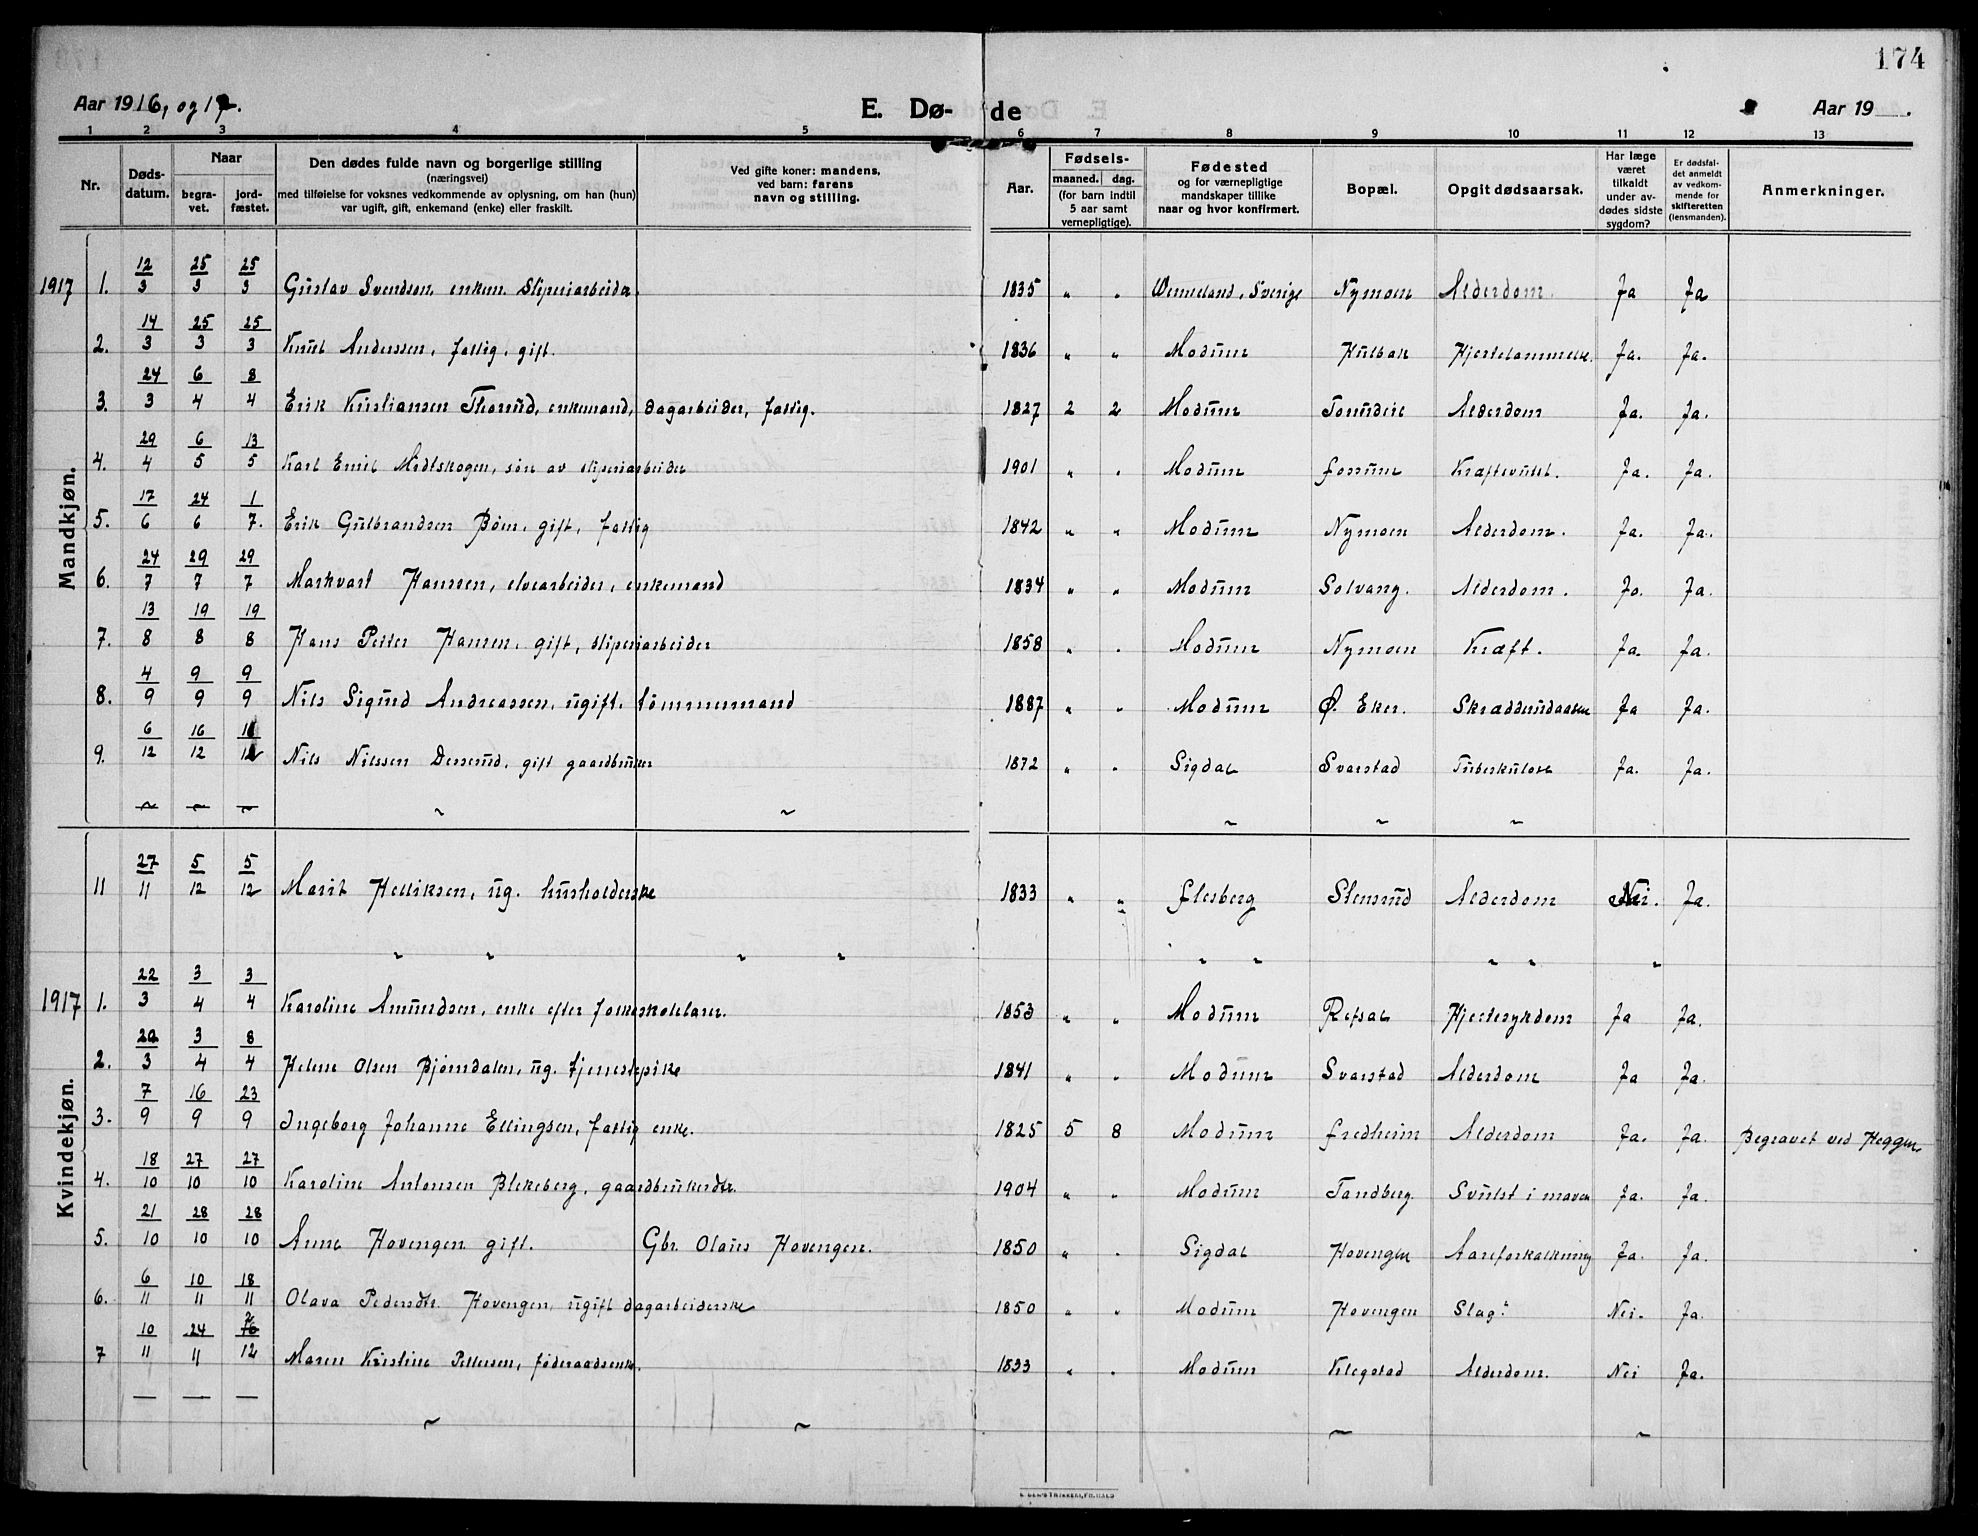 174
Aar 1916, og 17.
E. Dø- de
Aar 19 .
1 2 3 4 5 6 7 8 9 10 11 12 13
Nr.
Døds-datum.
Naar
begra-vet.
jord-fæstet.
Den dødes fulde navn og borgerlige stilling
(næringsvei)
med tilføielse for voksnes vedkommende av oplysning, om han (hun)
var ugift, gift, enkemand (enke) eller fraskilt.
Ved gifte koner: mandens,
ved barn: farens
navn og stilling.
Aar.
Fødsels-
maaned. dag.
(for barn indtil
5 aar samt
vernepligtige).
Fødested
og for værnepligtige
mandskaper tillike
naar og hvor konfirmert.
Bopæl.
Opgit dødsaarsak.
Har læge
været
tilkaldt
under av-
dødes sidste
sygdom?
Er dødsfal-
det anmeldt
av vedkom-
mende for
skifteretten
(lensmanden).
Anmerkninger.
Mandkjøn.
1917 1. 12/3 25/3 25/3 Gustav Svendsen, enkem. Sliperiarbeider. 1835 " " Wermeland, Sverige Nymoen Alderdom. Ja Ja
2. 14/3 25/3 25/3 Knut Anderssen, fattig, gift. 1836 " " Modum Kulbak Hjertelammelse. Ja. Ja.
3. 24/3 6/4 8/4 Erik Kristiansen Thorud, enkemand, dagarbeider, fattig. 1827 2 2 Modum Alderdom Ja. Ja.
4. 29/4 6/5 13/5 Karl Emil Midtskogen, søn av sliperiarbeider 1901 " " Modum Fossum Kræftsvulst. Ja. Ja.
5. 17/6 24/6 1/7. Erik Gulbrandsen Bøm, gift, fattig 1842 " " Modum Nymoen Alderdom. Ja. Ja.
6. 24/7 29/7 29/7 Markvart Hanssen, elvearbeider, enkemand 1834 " " Modum Solvang. Alderdom. Ja. Ja.
7. 13/8 19/8 19/8 Hans Petter Hansen, gift, sliperiarbeider 1858 " " Modum Nymoen Kræft. Ja. Ja.
8. 4/9 9/9 9/9 Nils Sigurd Andreassen, ugift. tømmermand 1887 " " Modum Ø. Eker. Ja Ja.
9. 6/12 16/12 Nils Nilssen Dererud, gift gaardbruker 1872 " " Sigdal Svarstad Tuberkulose Ja. Ja.
~ ~ ~ ~ ~ ~ ~ ~
11 27/11 5/12 5/12 Marit Helliksen, ug. husholderske 1833 " " Flesberg Stensrud Alderdom Nei. Ja.
" " " " " " " " "
Kvindekjøn.
1917 1. 22/3 3/4 3/4 Karoline Amundsen, enke efter folkeskolelærer. 1853 " " Modum Refsal Hjertesykdom Ja Ja.
2. 3/4 8/4 Helene Olsen Bjørndalen, ug. tjenestepike 1841 " " Modum Svarstad Alderdom Ja Ja.
3. 7/9 16/9 23/9 Ingeborg Johanne Ellingsen, fattig enke. 1825 5 8 Modum Fredheim Alderdom Ja. Ja. Begravet ved Heggen.
4. 18/10 27/10 27/10 Karoline Antonsen Blekeberg, gaardbrukerdtr. 1904 " " Modum Tandberg. Svulst i maven Ja. Ja.
5. 21/10 28/10 28/10 Anne Hovengen gift. Gbr. Olaus Hovengen. 1850 " " Sigdal Hovengen Aareforkalkning Ja. Ja.
6. 6/11 10/11 18/11 Olava Pedersdtr. Hovengen, ugift dagarbeiderske 1850 " " Modum Hovengen Slag. Nei. Ja.
7 10/11 24/11 2/12 Maren Kristine Pettersen, føderaadsenke. 1833 " " Modum Klegstad Alderdom. Nei Ja.
~ ~ ~ ~